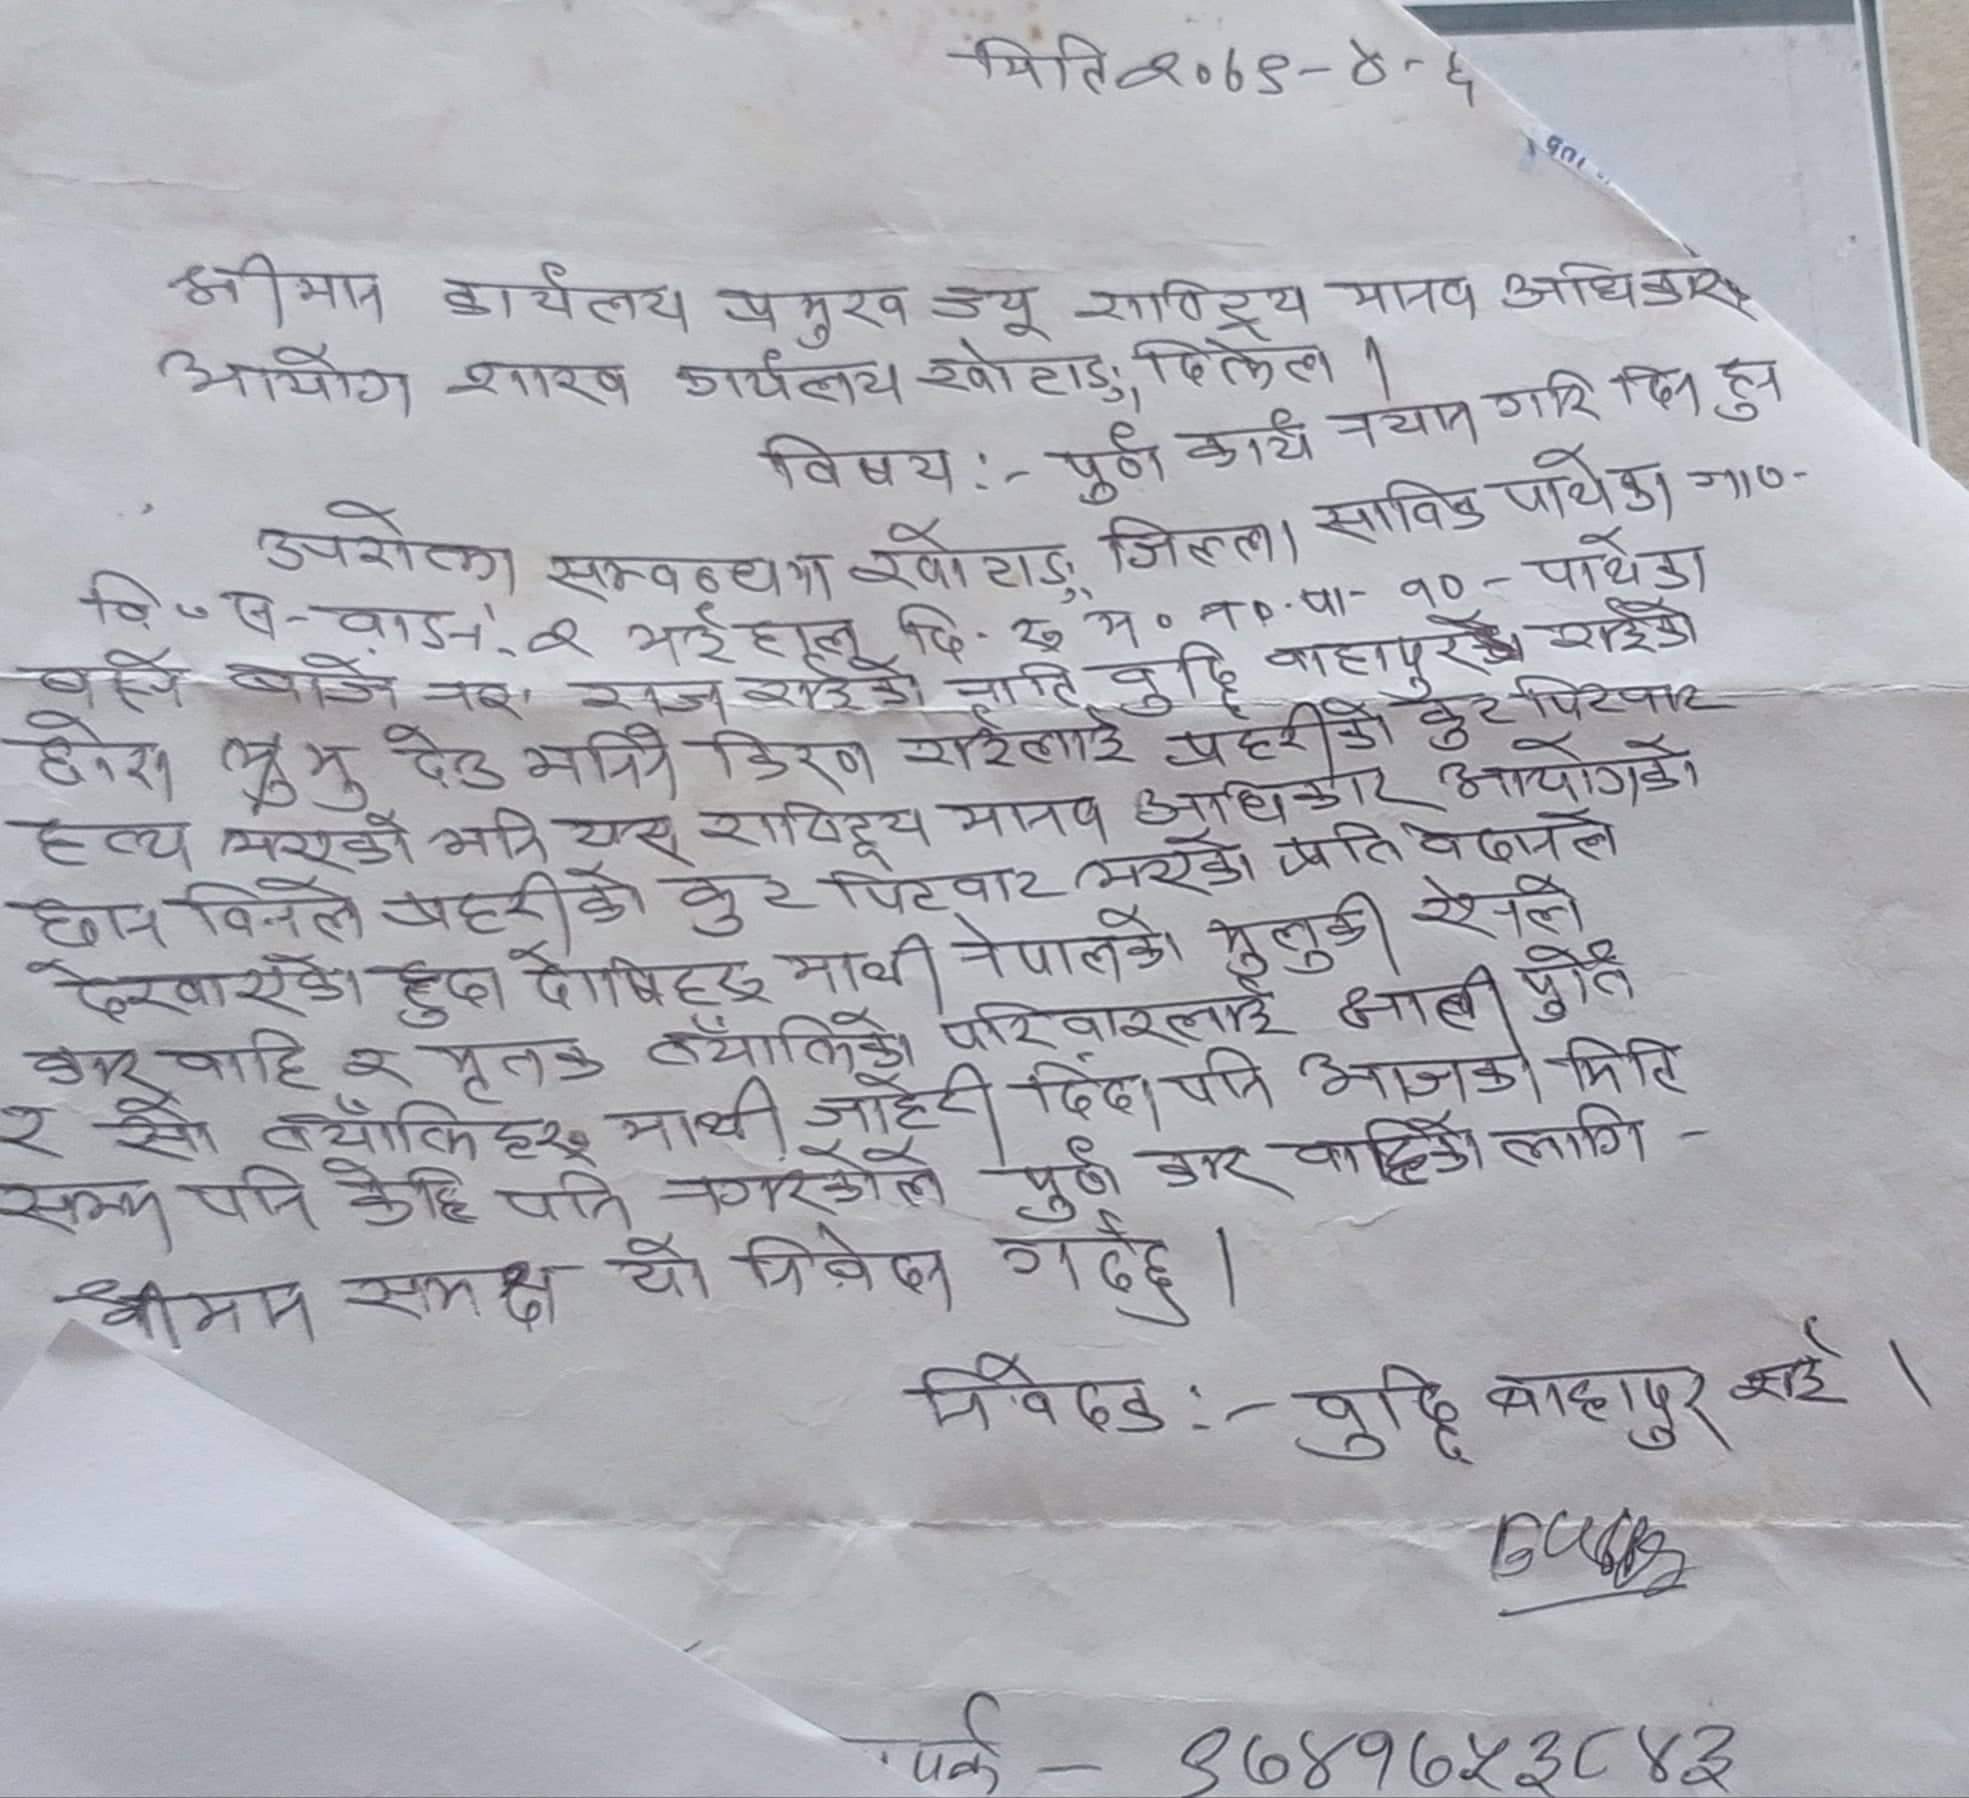 मिति २०७९-४-६
श्रीमान कार्यलय प्रमुख ज्यू राष्ट्रिय मानव अधिकार
आयोग शाख कार्यलय खोटाङ, दिक्तेल ।
विषय :- पुर्ण कार्य नयान गरि दिन हुन
उपरोक्त सम्वन्धमा खोटाङ, जिल्ला साविक पाथेका गा०-
वि० स- वाडनं. २ भई हालू दि. रू म० न०.पा- १० - पाथेका
वस्ने बाजे राज राईको नाति वुद्दि वाहादुरको राईको
छोरा देउ भनिने किरण राईलाई प्रहरीको कुट पिटवाट
हत्य भएको भनि यस राष्ट्रिय मानव अधिकार आयोगको
छान विनले प्रहरीको कुट पिटवाट भएको प्रति वेदनले
देखाएको हुदा दोषिहरू माथी नेपालको मुलुकी ऐनले
कार वाहि र मृतक व्याँक्तिको परिवारलाई क्षाती पुर्ति
र सो व्याँक्तिहरू माथी जाहेरी दिंदा पनि आजका मिति
सम्म पनि केहि पनि नगरेकोले पुर्ण कार वाहिको लागि -
श्रीमान समक्ष यो निवेदन गर्दछु ।
निवेदक :- वुद्दि बाहादुर राई ।
पर्क - ९७४१७५३८४३